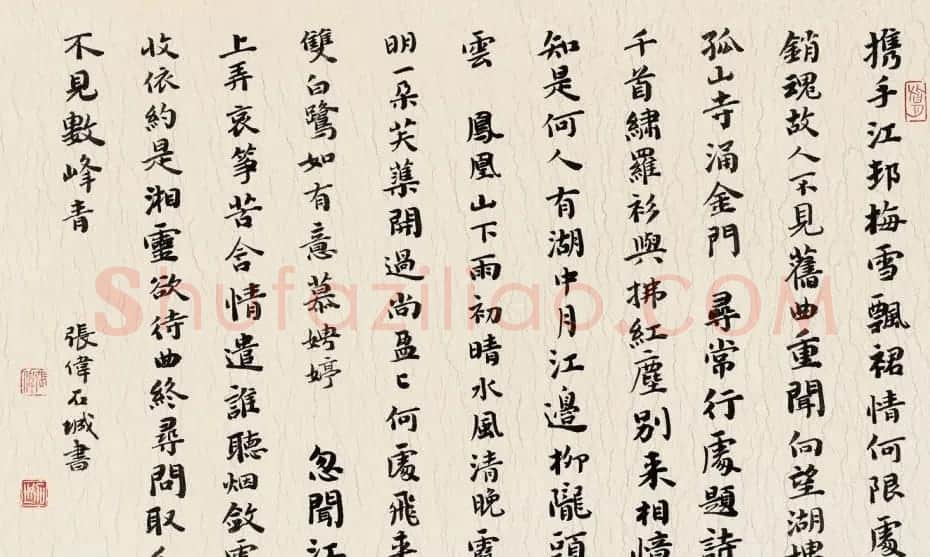 携手江邨梅雪飄裙情何限處
銷魂故人不見舊曲重聞向望湖
孤山寺涌金門 尋常行處題詩
千首繡羅衫與拂紅塵别来相憶
知是何人有湖中月江邊柳隴頭
雲 鳳凰山下雨初晴水風清晚
明一朵芙蕖開過尚盈〻何處飛来
雙白鷺如有意慕娉婷 忽聞江
上弄哀筝苦含情遣誰聽烟斂雲
收依約是湘靈欲待曲終尋問取
不見數峰青
張偉石城書
Shufaziliao.COM